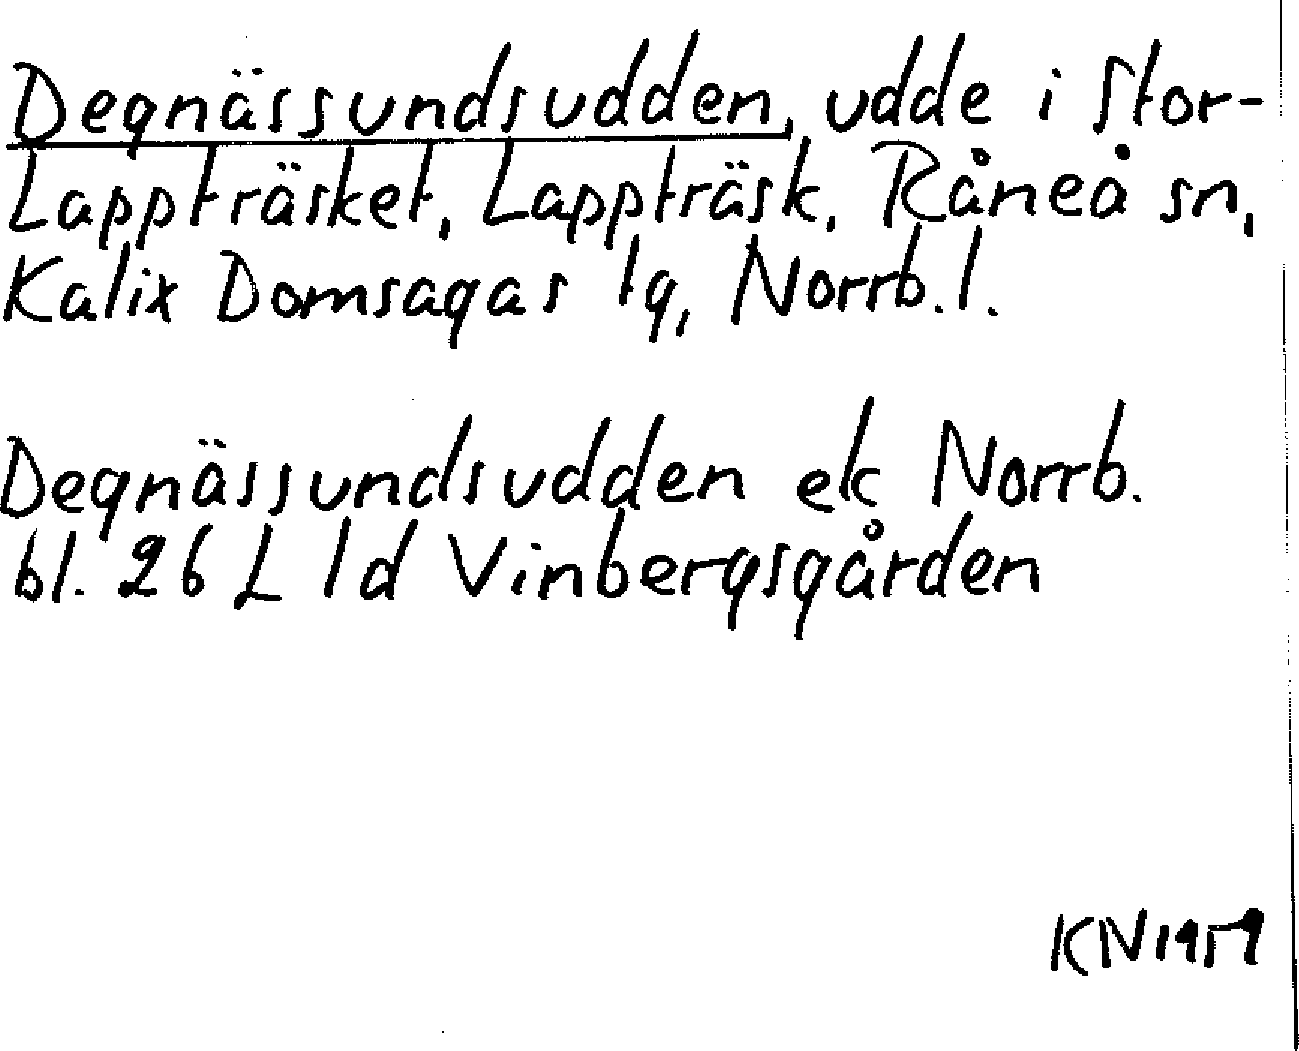 Degnässundsudden, udde i Stor-
Lappträsket, Lappträsk, Råneå sn,
Kalix Domsagas lg, Norrb. l.
Degnässundsudden ek Norrb.
bl. 26 L ld Vinbergsgården
KN 1959